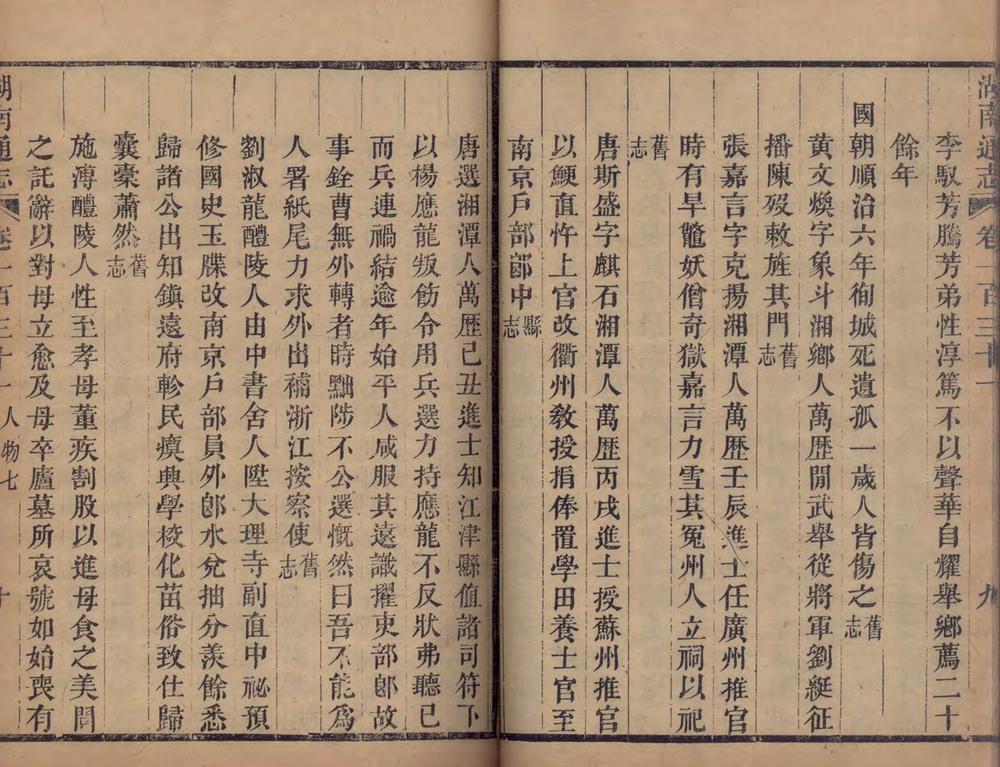 湖南通志 卷一百三十一 九
李馭芳騰芳弟性淳篤不以聲華自耀舉鄉薦二十
餘年
國朝順治六年徇城死遺孤一歲人皆傷之舊志
黃文煥字象斗湘鄉人萬歷閒武舉從將軍劉綎征
播陳歿敕旌其門舊志
張嘉言字克揚湘潭人萬歷壬辰進士任廣州推官
時有旱鼈妖僧奇獄嘉言力雪其冤州人立祠以祀
舊志
唐斯盛字麒石湘潭人萬歷丙戌進士授蘇州推官
以鯁直忤上官改衢州敎授捐俸置學田養士官至
南京戶部郎中縣志
唐選湘潭人萬歷己丑進士知江津縣值諸司符下
以楊應龍叛飭令用兵選力持應龍不反狀弗聽已
而兵連禍結逾年始平人咸服其遠識擢吏部郎故
事銓曹無外轉者時黜陟不公選慨然曰吾不能爲
人署紙尾力求外出補浙江按察使舊志
劉淑龍醴陵人由中書舍人陞大理寺副直中祕預
修國史玉牒改南京戶部員外郎水兌抽分羨餘悉
歸諸公出知鎮遠府軫民瘼興學校化苗俗致仕歸
囊橐蕭然舊志
施溥醴陵人性至孝母董疾割股以進母食之美問
之託辭以對母立愈及母卒廬墓所哀號如始喪有
湖南通志 卷一百三十一 人物七 十